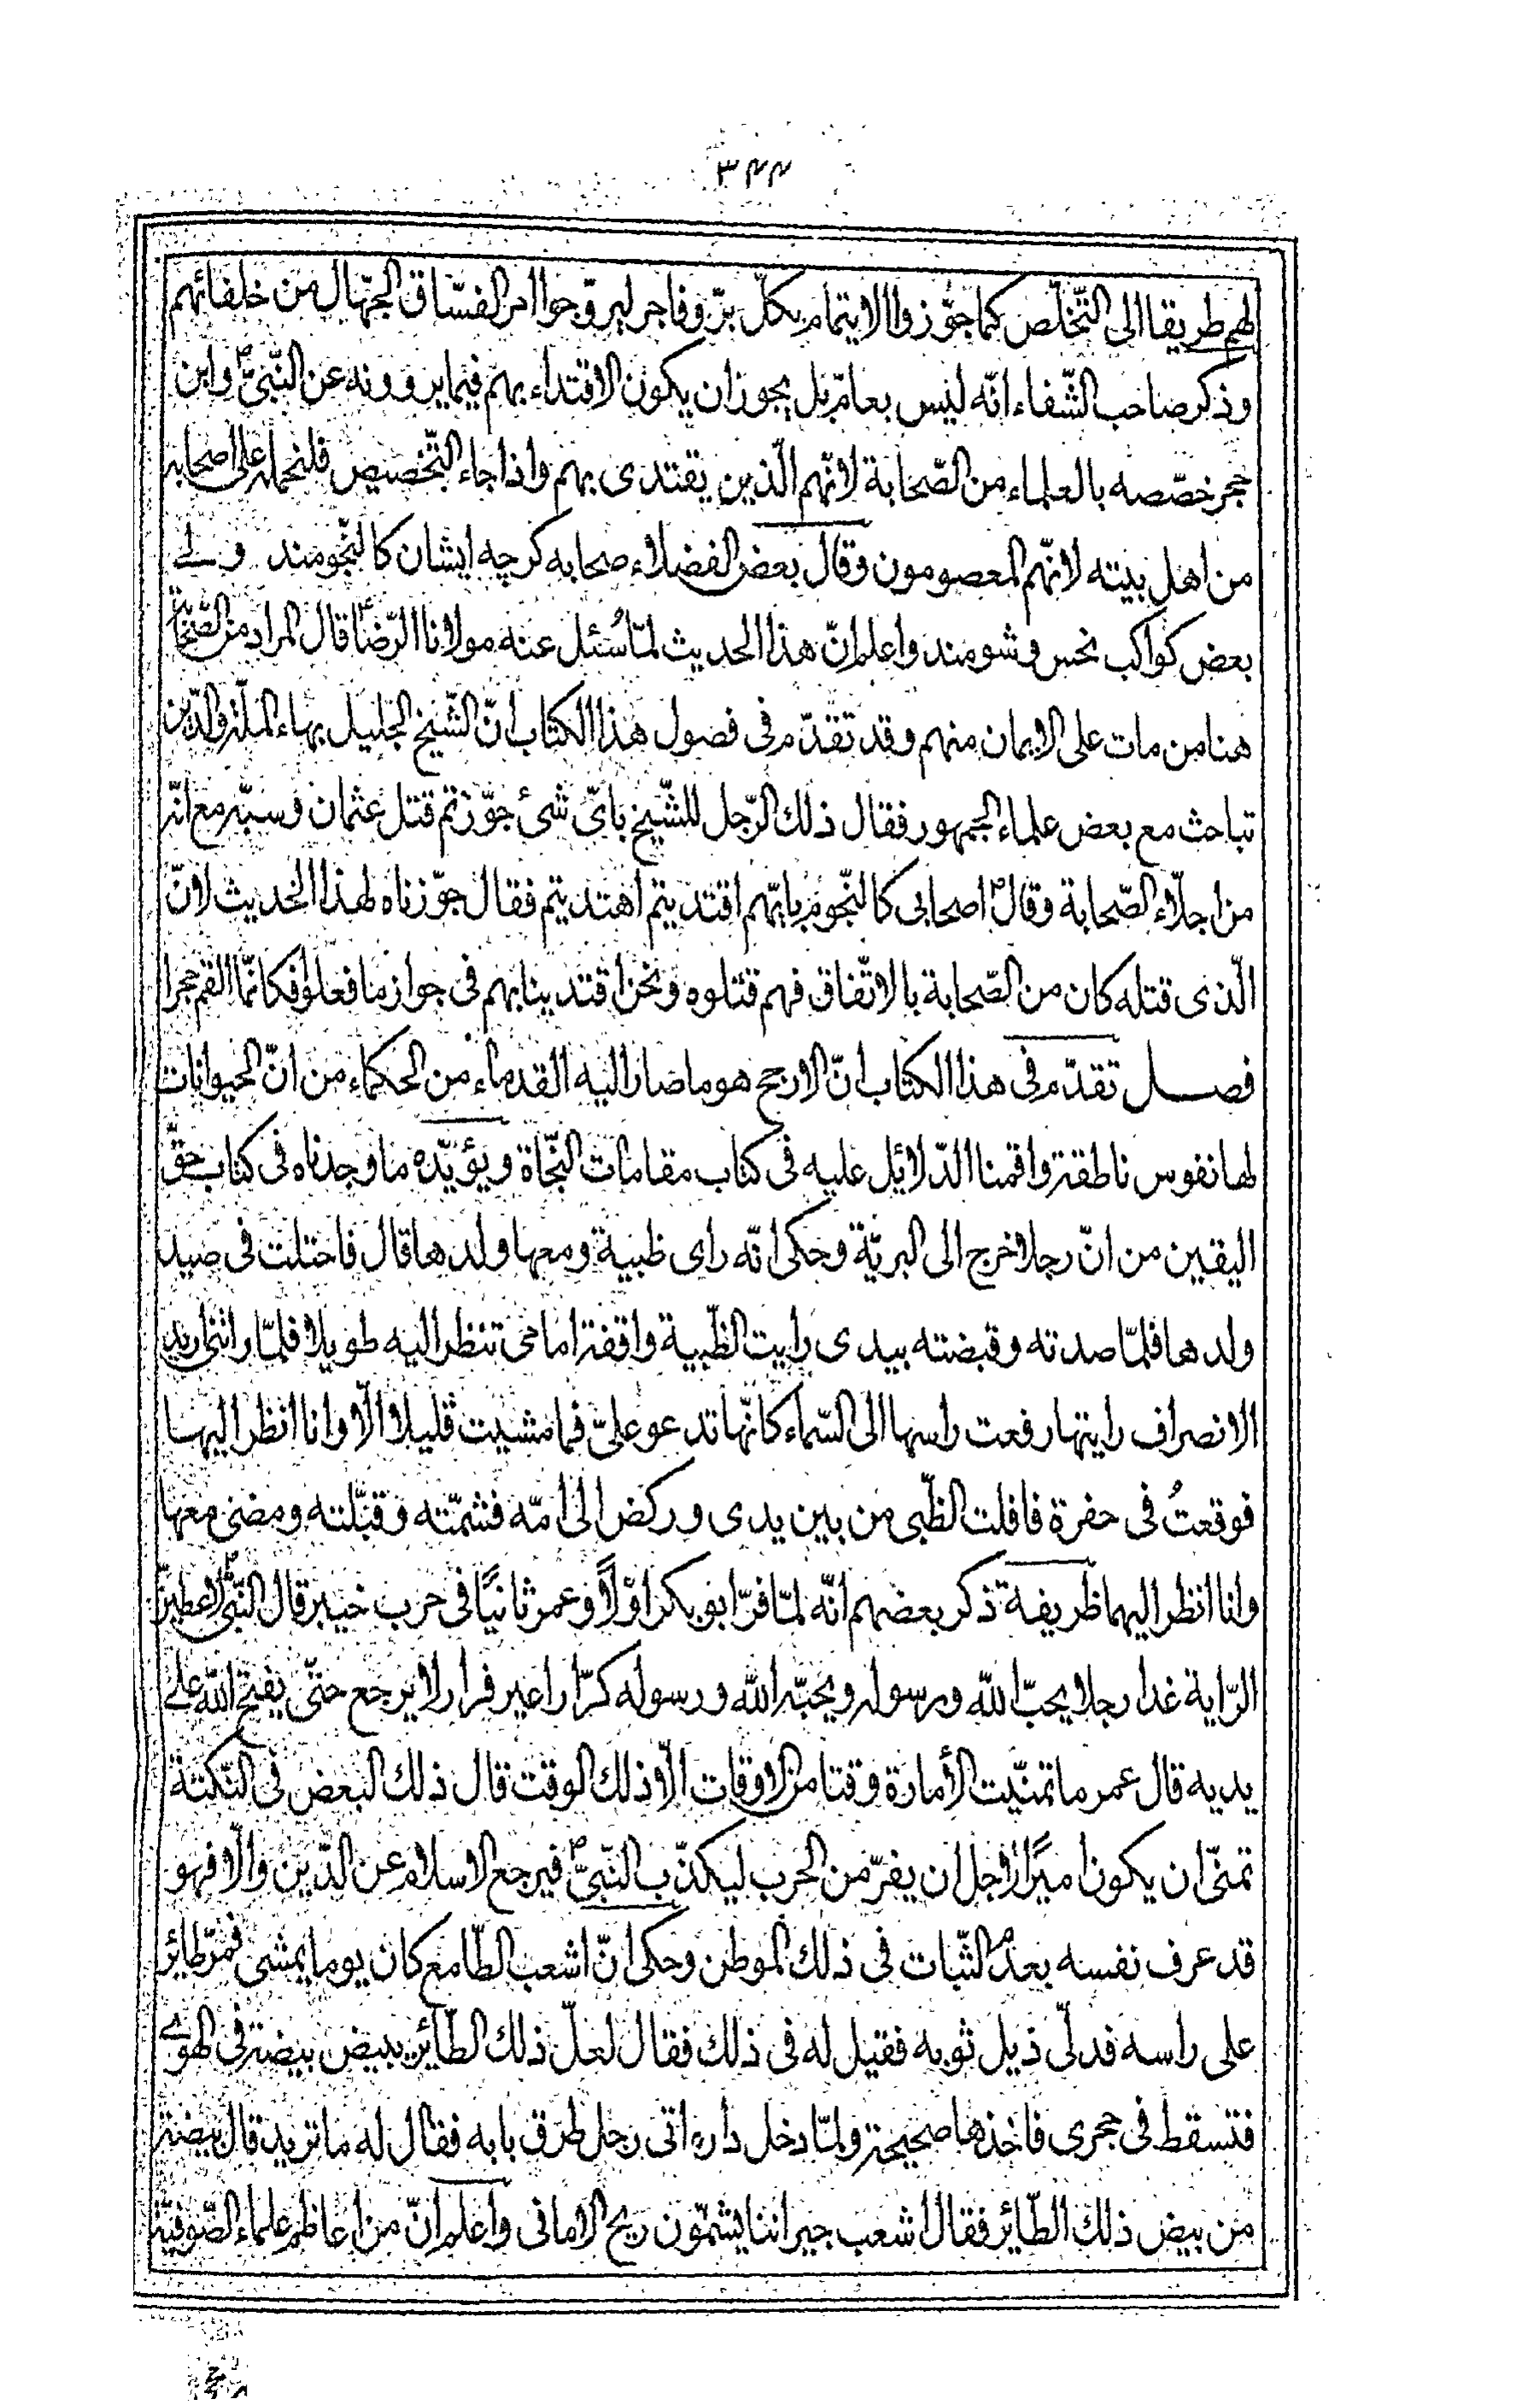 ٣٤٤
لهم طريقا الى التّخلّص كما جوّزوا الايتمام بكلّ برّ وفاجر ليروّجوا امر الفسّاق الجهّال من خلفائهم
وذكر صاحب الشّفاء انّه ليس بعامّ بل يجوز ان يكون الاقتداء بهم فيما يروونه عن النّبىّ ص وابن
حجر خصّصه بالعلماء من الصّحابة لانّهم الّذين يقتدى بهم واذا جاء التّخصيص فلنحمله على اصحابه
من اهل بيته لانّهم المعصومون وقال بعض الفضلاء صحابه كرچه ايشان كالنّجومند ولے
بعض كواكب نحس وشومند واعلم انّ هذا الحديث لمّا سُئل عنه مولانا الرّضا ع قال المراد من الصّحابة
هنا من مات على الايمان منهم وقد تقدّم فى فصول هذا الكتاب انّ الشّيخ الجليل بهاء الملّة والدّين
تباحث مع بعض علماء الجمهور فقال ذلك الرّجل للشّيخ باىّ شئ جوّزتم قتل عثمان وسبّه مع انّه
من اجلّاء الصّحابة وقال ص اصحابى كالنّجوم بايّهم اقتديتم اهتديتم فقال جوّزناه لهذا الحديث لانّ
الّذى قتله كان من الصّحابة بالاتّفاق فهم قتلوه ونحن اقتدينا بهم فى جواز ما فعلوا فكانّما القم حجرا
فصل تقدّم فى هذا الكتاب انّ الارجح هو ما صار اليه القدماء من الحكماء من انّ الحيوانات
لها نفوس ناطقة واقمنا الدّلائل عليه فى كتاب مقامات النّجاة ويؤيّده ما وجدناه فى كتاب حقّ
اليقين من انّ رجلا خرج الى البريّة وحكى انّه راى ظبية ومعها ولدها قال فاحتلت فى صيد
ولدها فلمّا صدته وقبضته بيدى رايت الظّبية واقفة امامى تنظر اليه طويلا فلمّا راتنى اريد
الانصراف رايتها رفعت راسها الى السّماء كانّها تدعو علىّ فما مشيت قليلا الّا وانا انظر اليها
فوقعتُ فى حفرة فافلت الظّبى من بين يدى وركض الى امّه فشمّته وقبّلته ومضى معها
وانا انظر اليهما ظريفة ذكر بعضهم انّه لمّا فرّ ابو بكر اوّلاً وعمر ثانيًا فى حرب خيبر قال النّبىّ ص لاعطينّ
الرّاية غدا رجلا يحبّ اللّه ورسوله ويحبّه اللّه ورسوله كرّارا غير فرار لا يرجع حتّى يفتح اللّه على
يديه قال عمر ما تمنّيت الأمارة وقتا من الاوقات الّا ذلك الوقت قال ذلك البعض فى النّكتة
تمنّى ان يكون اميرًا لاجل ان يفرّ من الحرب ليكذّب النّبىّ ص فيرجع الاسلام عن الدّين والّا فهو
قد عرف نفسه بعدم الثّبات فى ذلك الموطن وحكى انّ اشعب الطّامع كان يوما يمشى فمرّ طائر
على راسه فدلّى ذيل ثوبه فقيل له فى ذلك فقال لعلّ ذلك الطّائر يبيض بيضة فى الهوى
فتسقط فى حجرى فاخذها صحيحة ولمّا دخل داره اتى رجل طرق بابه فقال له ما تريد قال بيضة
من بيض ذلك الطّائر فقال اشعب جيراننا يشمّون ريح الامانى واعلم انّ من اعاظم علماء الصّوفيّة